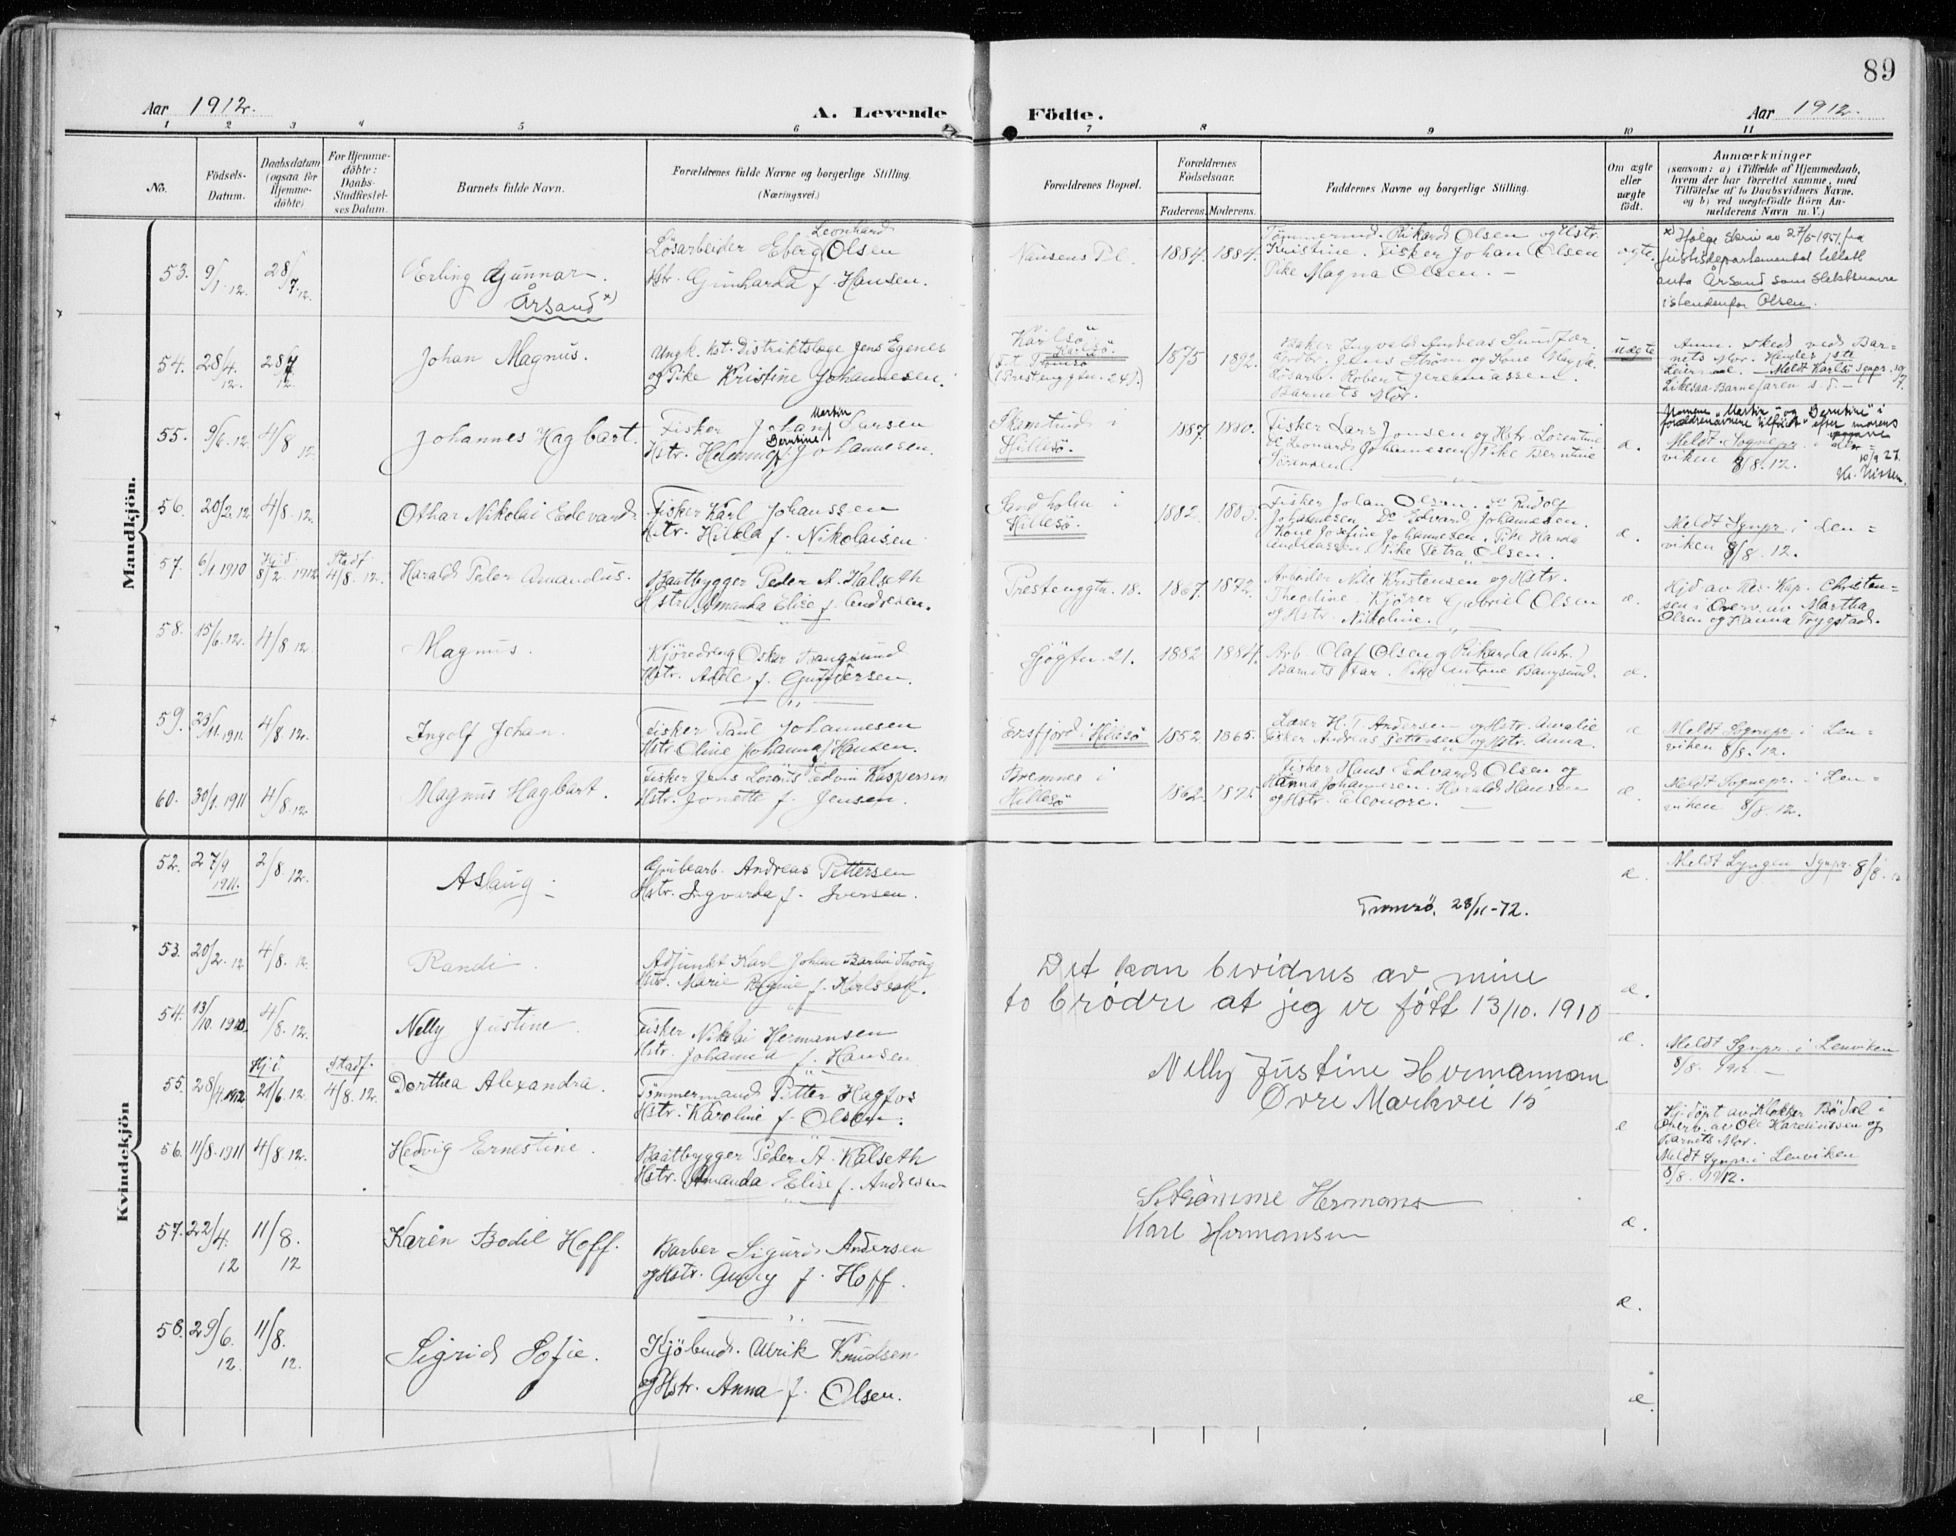 89
Aar 1912.
A. Levende Födte.
Aar 1912.
1 2 3 4 5 6 7 8 9 10 11
No.
Födsels-
Datum.
Daabsdatum
(ogsaa for
Hjemme-
döbte)
For Hjemme-
döbte:
Daabs-
Stadfæstel-
ses Datum.
Barnets fulde Navn.
Forældrenes fulde Navne og borgerlige Stilling.
(Næringsvei.)
Forældrenes Bopæl.
Forældrenes
Födselsaar.
Faderens. Moderens.
Faddernes Navne og borgerlige Stilling.
Om ægte
eller
uægte
födt.
Anmærkninger
(saasom: a) i Tilfælde af Hjemmedaab,
hvem der har forrettet samme, med
Tilföielse af to Daabsvidners Navne,
og b) ved uægtefödte Börn An-
melderens Navn m. V.)
Mandkjön.
53. 9/1 12. 28/7 12.
Erling Gunnar
Årsand x)
Leonhard
Løsarbeider Eberg Olsen
Hstr. Gunharda f. Hansen.
Nansens Pl. 1884. 1884.
Tømmermd. Rikard Olsen og Hstr.
Kristine. Fisker Johan Olsen
Pike Magna Olsen.
ægte.
x) Ifølge skriv av 27/6-1951 fra
justisdepartementet tillatt
anta Årsand som slektsnavn
istendenfor Olsen.
54. 28/4 12. 28/7 12
Johan Magnus.
Ungk. kst. Distriktslæge Jens Egenes
og Pike Kristine Johannesen.
Karlsö
Karlsö.
F. t. Tromsö
(Prestenggtn. 24).
1875 1892.
Jens Strøm og Kone Magja
Løsarb. Robert Jeremiassen.
Barnets Mor.
uægte
Anm. sked ved Bar-
nets Mor. Hendes 1ste
Leiermaal. Meldt Karlsö Sgnpr.
55. 9/6. 12. 4/8 12.
Johannes Hagbart.
Martin
Fisker Johan Larsen
Berntine
Hstr. Helmine f. Johannesen.
Hillesö.
1887. 1880.
Fisker Lars Jonsen og Hstr. Lorentine
Do Leonard Johannesen Pike Berntine
Sörensen
æ.
Navnene "Martin" og "Berntine" i
forældrenavnene tilföiet efter morens
opgave
Meldt Sognepr. i Len-
viken 8/8. 12.
10/9 27.
56. 20/2. 12 4/8. 12.
Othar Nikolai Edevard
Fisker Karl Johanssen
Hstr. Hilda f. Nikolaisen.
Sandholm i
Hillesö.
1882.
Fisker Johan Olsen. Do Rudolf
Johannesen Do Edvard Johannesen.
Kone Josefine Johannesen. Pike Handa
Andreassen Pike Petra Olsen.
æ.
Meldt Sgnpr. i Len-
viken 8/8. 12.
57. 6/1 1910 Hjd 8/2. 1912 Stadf. 4/8. 12.
Harald Peter Amandus.
Baatbygger Peder A. Kalseth
Hstr. Amanda Elise f. Andresen.
Prestenggtn. 18. 1867. 1872.
Arbeider Nils Kristensen og Hstr.
Theoline. Kjører Gabriel Olsen
og Hstr. Nikoline.
æ.
Hjd av Res. Kap. Christen-
sen i Overv. av Martha
Olsen og Hanna Trygstad.
58. 15/6. 12. 4/8 12.
Magnus.
Kjøredreng Oskar Bangsund
Hstr. Adele f. Gundersen.
Sjøgtn. 21. 1882 1884.
Arb. Olaf Olsen og Rikarda (Hstr.)
Barnets Far. Pike Antone Bangsund.
æ.
59. 23/11. 1911. 4/8. 12.
Ingolf Johan.
Fisker Paul Johannesen
Hstr. Oline Johanna f. Hansen.
Ersfjord i Hillesö 1852 1865.
Læser H. T. Andersen og Hstr. Amalie
Fisker Andreas Pettersen og Hstr. Anna.
æ
Meldt Sognepr. i Len-
viken 8/8. 12.
60. 30/1. 1911 4/8. 12
Magnus Hagbart.
Fisker Jens Lorents Edvin Kaspersen
Hstr. Jonette f. Jensen.
Bremnes i
Hillesö
1862. 1875
Fisker Hans Edvard Olsen og
Hanna Johannesen. Harald Hansen
og Hstr. Eleonore.
æ.
Meldt Sognepr. i Len-
viken 8/8. 12.
Kvindekjön
52. 27/9 1911. 2/8. 12.
Aslaug
Grubearb. Andreas Pettersen
Hstr. Ingvarda f. Iversen.
æ.
Meldt Lyngen Sgnpr. 8/8. 12
53. 20/2. 12 4/8. 12.
Randi
Adjunkt Karl Johan
Hstr. Marie Regine f.
æ.
54. 13/10. 1910. 4/8. 12.
Nelly Justine
Fisker Nikolai Hermansen
Hstr. Johanna f. Hansen
æ.
Meldt Sgnpr. i Lenviken
8/8. 1912.
55. 28/4. 1912 Hj.d. 21/6. 12 Stadf. 4/8. 12.
Dorthea Alexandra.
Tømmermand Petter Hagfos
Hstr. Karoline f. Olsen.
æ
Hj. döpt av Klokker Bödal i
Overv. av Ole Karelinssen og
Barnets Mor.
Meldt Sgnpr. i Lenviken
8/8. 1912.
56. 11/8. 1911 4/8. 12.
Hedvig Ernestine.
Baatbygger Peder A. Kalseth
Hstr. Amanda Elise f. Andresen
æ.
57. 22/4. 12 11/8. 12
Karen Bodil Hoff.
Barber Sigurd Andersen
og Hstr. f. Hoff.
æ.
58. 29/6. 12. 11/8. 12.
Sigrid Sofie.
Kjöbmd. Ulrik Knudsen
og Hstr. Anna f. Olsen.
æ.
Tromsö, 28/11-72.
Det kan bevidnes av mine
to brødre at jeg er født 13/10. 1910
Nelly Justine Hermansen
Øvre Markvei 15
Hermans
Karl Hermansen